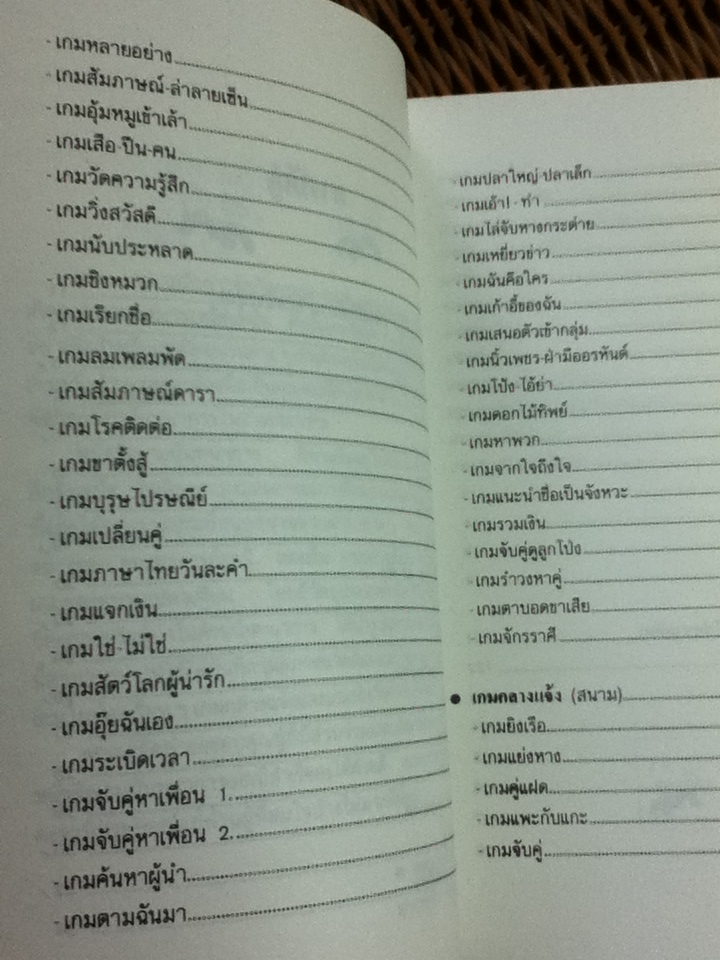 - เกมหลายอย่าง
- เกมสัมภาษณ์-ล่าลายเซ็น
- เกมอุ้มหมูเข้าเล้า
- เกมเสือ-ปืน-คน
- เกมวัดความรู้สึก
- เกมวิ่งสวัสดี
- เกมนับประหลาด
- เกมชิงหมวก
- เกมเรียกชื่อ
- เกมลมเพลมพัด
- เกมสัมภาษณ์ดารา
- เกมโรคติดต่อ
- เกมขาตั้งสู้
- เกมบุรุษไปรษณีย์
- เกมเปลี่ยนคู่
- เกมภาษาไทยวันละคำ
- เกมแจกเงิน
- เกมใช่-ไม่ใช่
- เกมสัตว์โลกผู้น่ารัก
- เกมอุ๊ยฉันเอง
- เกมระเบิดเวลา
- เกมจับคู่หาเพื่อน 1
- เกมจับคู่หาเพื่อน 2
- เกมค้นหาผู้นำ
- เกมตามฉันมา
- เกมปลาใหญ่-ปลาเล็ก
- เกมเอ้า! - ทำ
- เกมไล่จับหางกระต่าย
- เกมเหยี่ยวข่าว
- เกมฉันคือใคร
- เกมเก้าอี้ของฉัน
- เกมเสนอตัวเข้ากลุ่ม
- เกมนิ้วเพชร-ฝ่ามืออรหันต์
- เกมโป้ง-ไอ้ย่า
- เกมดอกไม้ทิพย์
- เกมหาพวก
- เกมจากใจถึงใจ
- เกมแนะนำชื่อเป็นจังหวะ
- เกมรวมเงิน
- เกมจับคู่ดูลูกโป่ง
- เกมรำวงหาคู่
- เกมตาบอดขาเสีย
- เกมจักรราศี
● เกมกลางแจ้ง (สนาม)
- เกมยิงเรือ
- เกมแย่งหาง
- เกมคู่แฝด
- เกมแพะกับแกะ
- เกมจับคู่